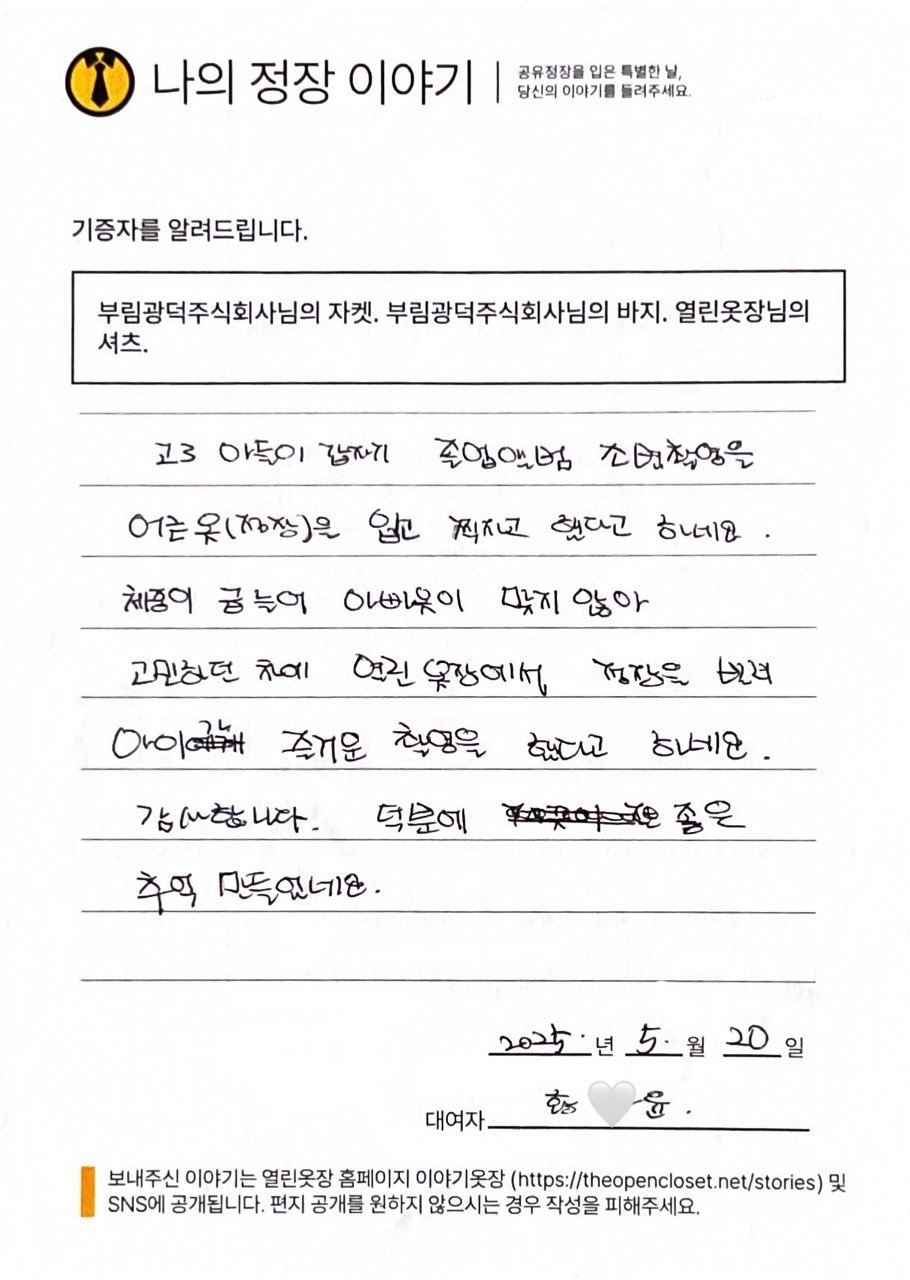 나의 정장 이야기
공유정장을 입은 특별한 날,
당신의 이야기를 들려주세요.
기증자를 알려드립니다.
부림광덕주식회사님의 자켓. 부림광덕주식회사님의 바지. 열린옷장님의
셔츠.
고3 아들이 갑자기 졸업앨범 조별촬영을
어른옷(정장)을 입고 찍자고 했다고 하네요.
체중이 급 늘어 아빠옷이 맞지 않아
고민하던 차에 열린옷장에서 정장을 빌려
아이는 즐거운 촬영을 했다고 하네요.
감사합니다. 덕분에 좋은
추억 만들었네요.
2025. 년 5. 월 20 일
대여자 황 윤.
보내주신 이야기는 열린옷장 홈페이지 이야기옷장 (https://theopencloset.net/stories) 및
SNS에 공개됩니다. 편지 공개를 원하지 않으시는 경우 작성을 피해주세요.